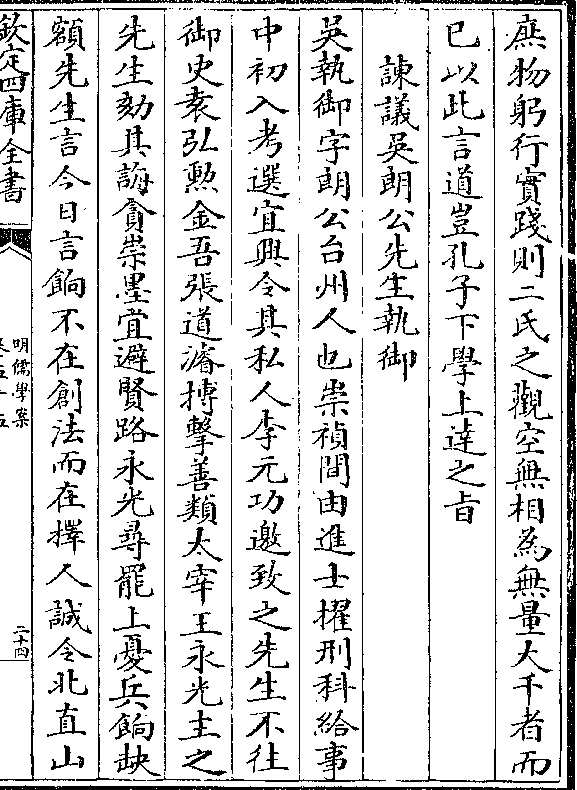 庶物躬行實踐則二氏之觀空無相為無量大千者而
已以此言道豈孔子下學上達之旨
諫議吳朗公先生執御
吳執御字朗公台州人也崇禎間由進士擢刑科給事
中初入考選宜興令其私人李元功邀致之先生不往
御史袁弘勲金吾張道濬搏擊善類太宰王永光主之
先生劾其誨貪崇墨宜避賢路永光尋罷上憂兵餉缺
額先生言今日言餉不在創法而在擇人誠令北直山
欽定四庫全書
明儒學案
卷五十五
二十四